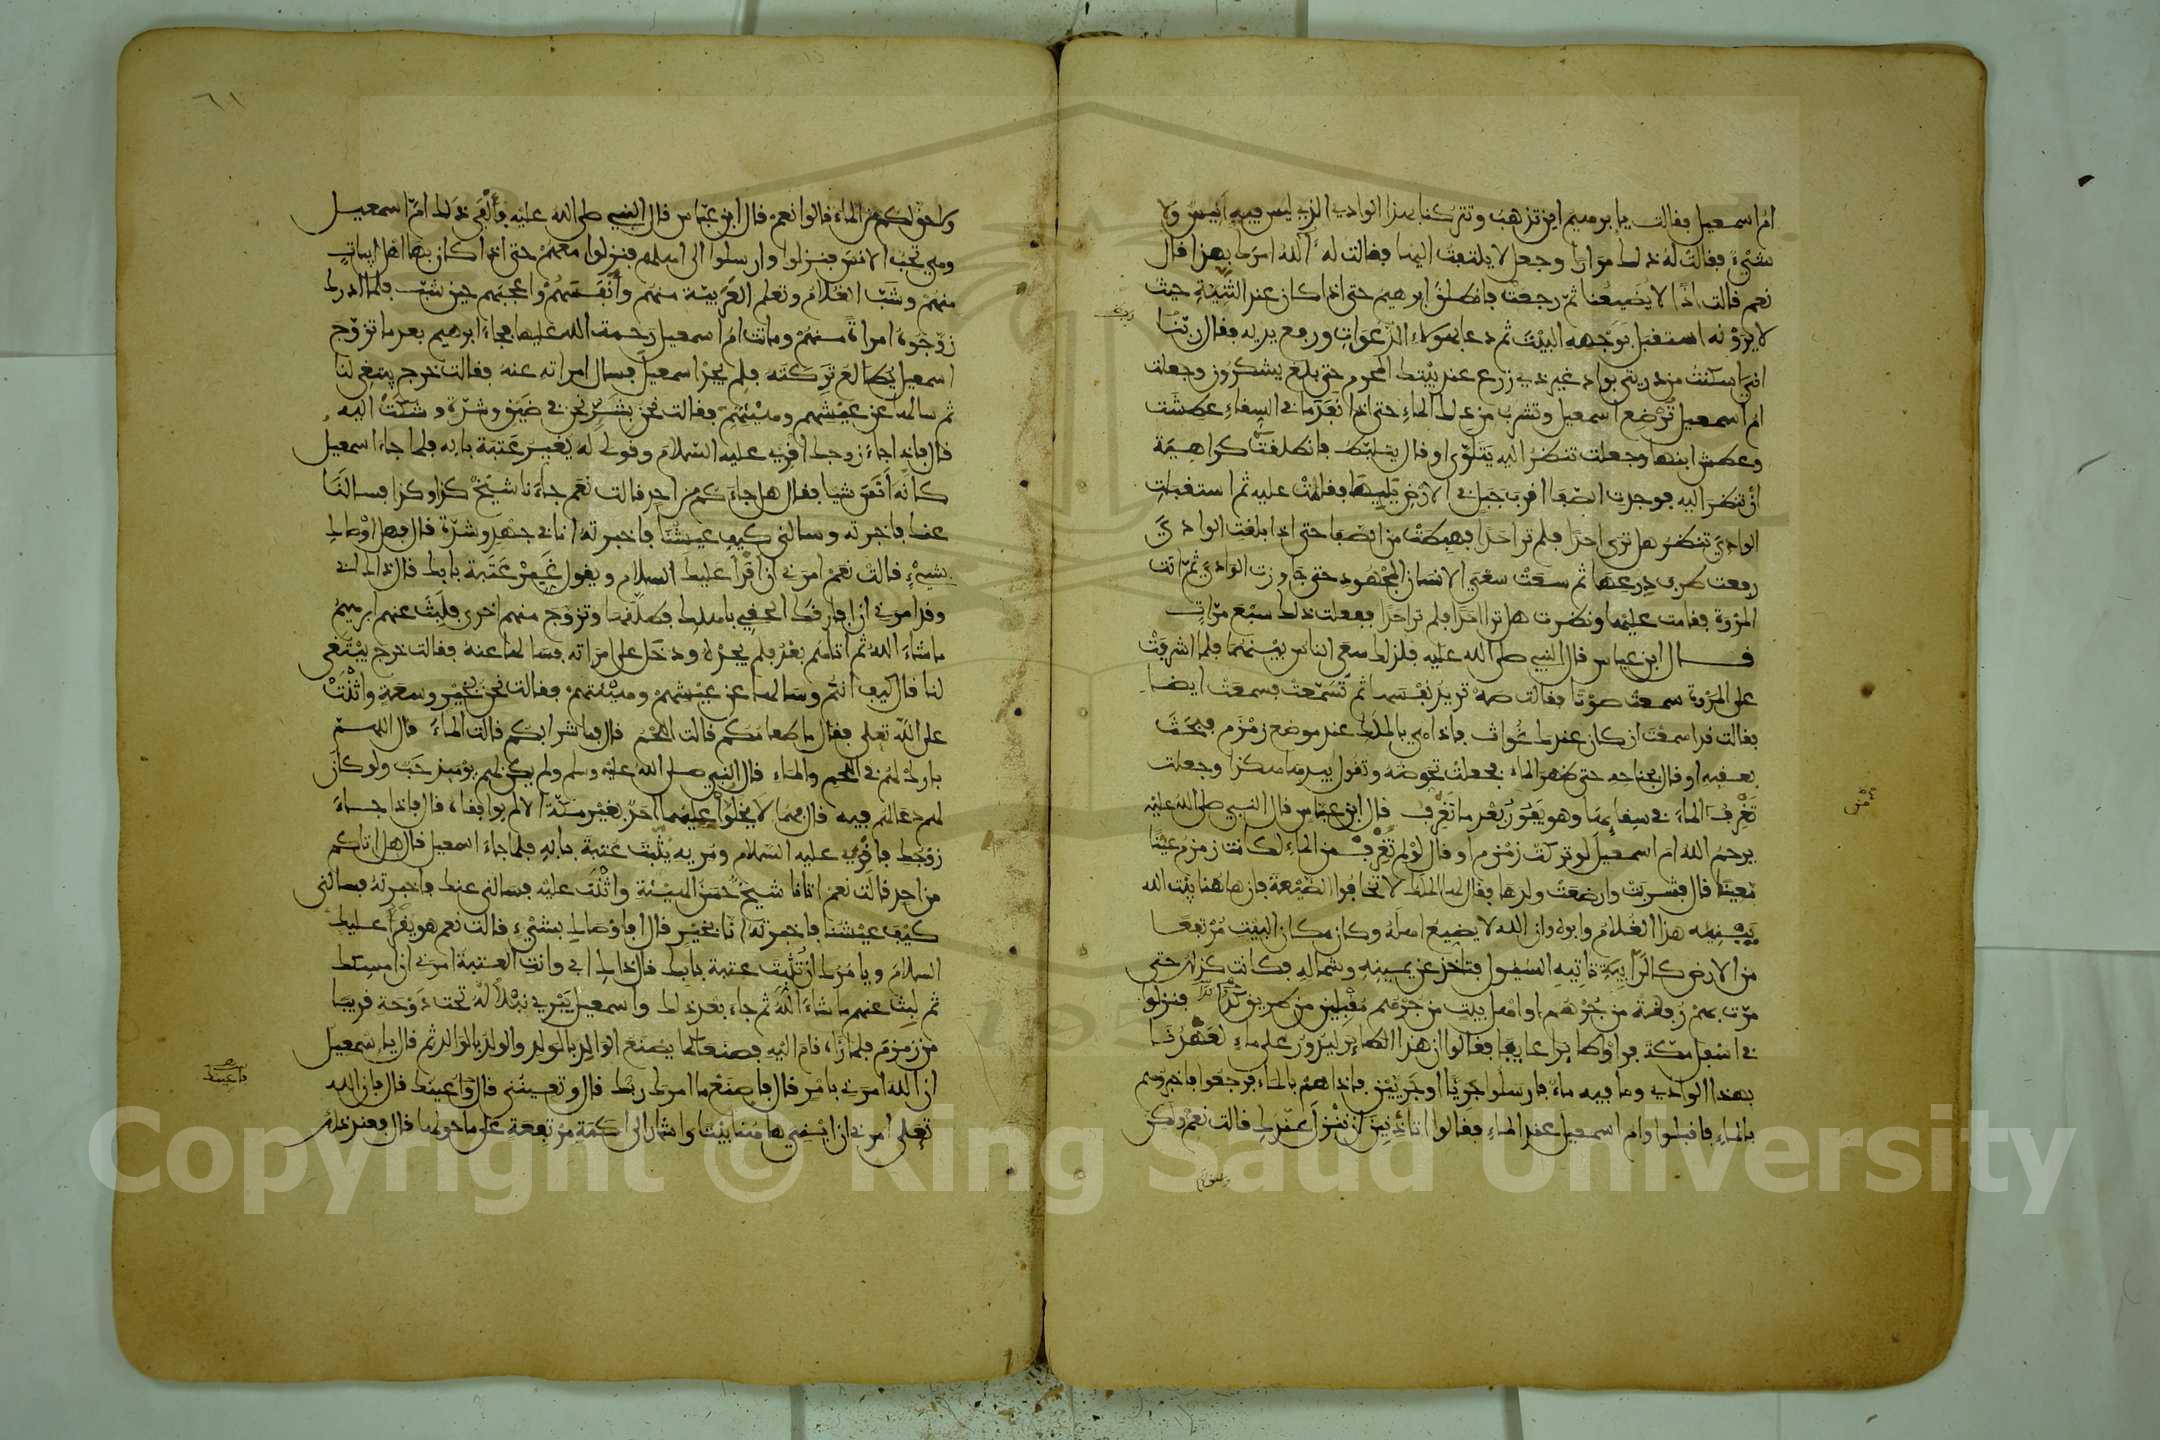 ام اسمعيل فقالت يا ابرهيم اين تذهب وتتركنا بهذا الوادي الذي ليس فيه انيس ولا
شيء فقالت له ذلك مرارا وجعل لا يلتفت اليها فقالت له آلله امرك بهذا قال
نعم قالت اذا لا يضيعنا ثم رجعت فانطلق ابرهيم حتى اذا كان عند الثنية حيث
لا يرونه استقبل بوجهه البيت ثم دعا بهؤلاء الدعوات ورفع يديه فقال ربنا
اني اسكنت من ذريتي بواد غير ذي زرع عند بيتك المحرم حتى بلغ يشكرون وجعلت
ام اسمعيل ترضع اسمعيل وتشرب من ذلك الماء حتى اذا نفد ما في السقاء عطشت
وعطش ابنها وجعلت تنظر اليه يتلوى او قال يتلبط فانطلقت كراهية
ان تنظر اليه فوجدت الصفا اقرب جبل في الارض يليها فقامت عليه ثم استقبلت
الوادي تنظر هل ترى احدا فلم تر احدا فهبطت من الصفا حتى اذا بلغت الوادي
رفعت طرف درعها ثم سعت سعي الانسان المجهود حتى جاوزت الوادي ثم اتت
المروة فقامت عليها ونظرت هل ترا احدا فلم تر احدا ففعلت ذلك سبع مرات
قال ابن عباس قال النبي صلى الله عليه فلذلك سعي الناس بينهما فلما اشرفت
على المروة سمعت صوتا فقالت صه تريد نفسها ثم تسمعت فسمعت ايضا
فقالت قد اسمعت ان كان عندك غواث فاذا هي بالملك عند موضع زمزم فبحث
بعقبه او قال بجناحه حتى ظهر الماء فجعلت تحوضه وتقول بيدها هكذا وجعلت
تغرف الماء في سقائها وهو يفور بعد ما تغرف قال ابن عباس قال النبي صلى الله عليه
يرحم الله ام اسمعيل لو تركت زمزم او قال لو لم تغرف من الماء لكانت زمزم عينا
معينا قال فشربت وارضعت ولدها فقال لها الملك لا تخافوا الضيعة فان هاهنا بيت الله
يبنيه هذا الغلام وابوه وان الله لا يضيع اهله وكان مكان البيت مرتفعا
من الارض كالرابية تاتيه السيول فتاخذ عن يمينه وشماله فكانت كذلك حتى
مرت بهم رفقة من جرهم او اهل بيت من جرهم مقبلين من طريق كدا فنزلوا
في اسفل مكة فراوا طائرا عايفا فقالوا ان هذا الطائر ليدور على ماء لعهدنا
بهذا الوادي وما فيه ماء فارسلوا جريا او جريين فاذا هم بالماء فرجعوا فاخبروهم
بالماء فاقبلوا وام اسمعيل عند الماء فقالوا اتاذنين لن ننزل عندك قالت نعم ولكن
لا حق لكم في الماء قالوا نعم قال ابن عباس قال النبي صلى الله عليه فالفى ذلك ام اسمعيل
وهي تحب الانس فنزلوا وارسلوا الى اهلهم فنزلوا معهم حتى اذا كان بها اهل ابيات
منهم وشب الغلام وتعلم العربية منهم وانفسهم واعجبهم حين شب فلما ادرك
زوجوه امراة منهم وماتت ام اسمعيل رحمة الله عليها فجاء ابرهيم بعد ما تزوج
اسمعيل يطالع تركته فلم يجد اسمعيل فسال امراته عنه فقالت خرج يبتغي لنا
ثم سالها عن عيشهم وهيئتهم فقالت نحن بشر نحن في ضيق وشدة وشكت اليه
قال فاذا جاء زوجك اقرئي عليه السلام وقولي له يغير عتبة بابه فلما جاء اسمعيل
كانه انس شيا فقال هل جاءكم من احد قالت نعم جاءنا شيخ كذا وكذا فسالنا
عنك فاخبرته وسالني كيف عيشنا فاخبرته انا في جهد وشدة قال فهل اوصاك
بشيء قالت نعم امرني ان اقرا عليك السلام ويقول غير عتبة بابك قال ذاك ابي
وقد امرني ان افارقك الحقي باهلك فطلقها وتزوج منهم اخرى فلبث عنهم ابرهيم
ما شاء الله ثم اتاهم بعد فلم يجده ودخل على امراته فسالها عنه فقالت خرج يبتغي
لنا قال كيف انتم وسالها عن عيشهم وهيئتهم فقالت نحن بخير وسعة واثنت
على الله تعلى فقال ما طعامكم قالت اللحم قال فما شرابكم قالت الماء قال اللهم
بارك لهم في اللحم والماء قال النبي صلى الله عليه وسلم ولم يكن لهم يومئذ حب ولو كان
لهم دعا لهم فيه قال فهما لا يخلوا عليهما احد بغير مكة الا لم يوافقاه قال فاذا جاء
زوجك فاقرئي عليه السلام ومريه يثبت عتبة بابه فلما جاء اسمعيل قال هل اتاكم
من احد قالت نعم اتانا شيخ حسن الهيئة واثنت عليه فسالني عنك فاخبرته فسالني
كيف عيشنا فاخبرته انا بخير قال فاوصاك بشيء قالت نعم هو يقرا عليك
السلام ويامرك ان تثبت عتبة بابك قال ذاك ابي وانت العتبة امرني ان امسكك
ثم لبث عنهم ما شاء الله ثم جاء بعد ذلك واسمعيل يبري نبلا له تحت دوحة قريبا
من زمزم فلما راه قام اليه فصنعا كما يصنع الوالد بالولد والولد بالوالد ثم قال يا اسمعيل
ان الله امرني بامر قال فاصنع ما امرك ربك قال وتعينني قال واعينك قال فان الله
تعلى امرني ان ابني هاهنا بيتا واشار الى اكمة مرتفعة على ما حولها قال فعند ذلك
فاعينك
Copyright © King Saud University